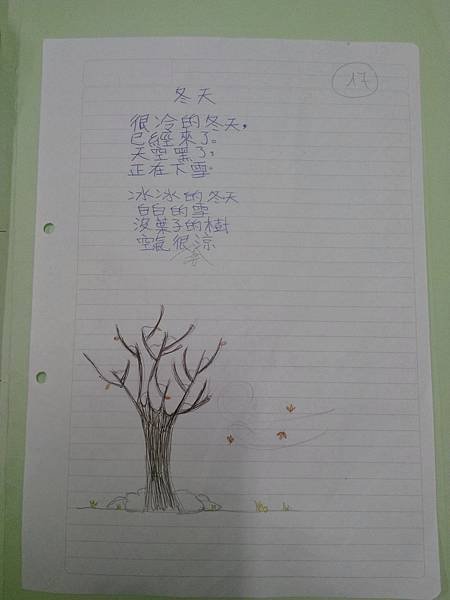 冬天
很冷的冬天,
已經來了。
天空黑了,
正在下雪。
冰冰的冬天
白白的雪
沒葉子的樹
空氣很涼